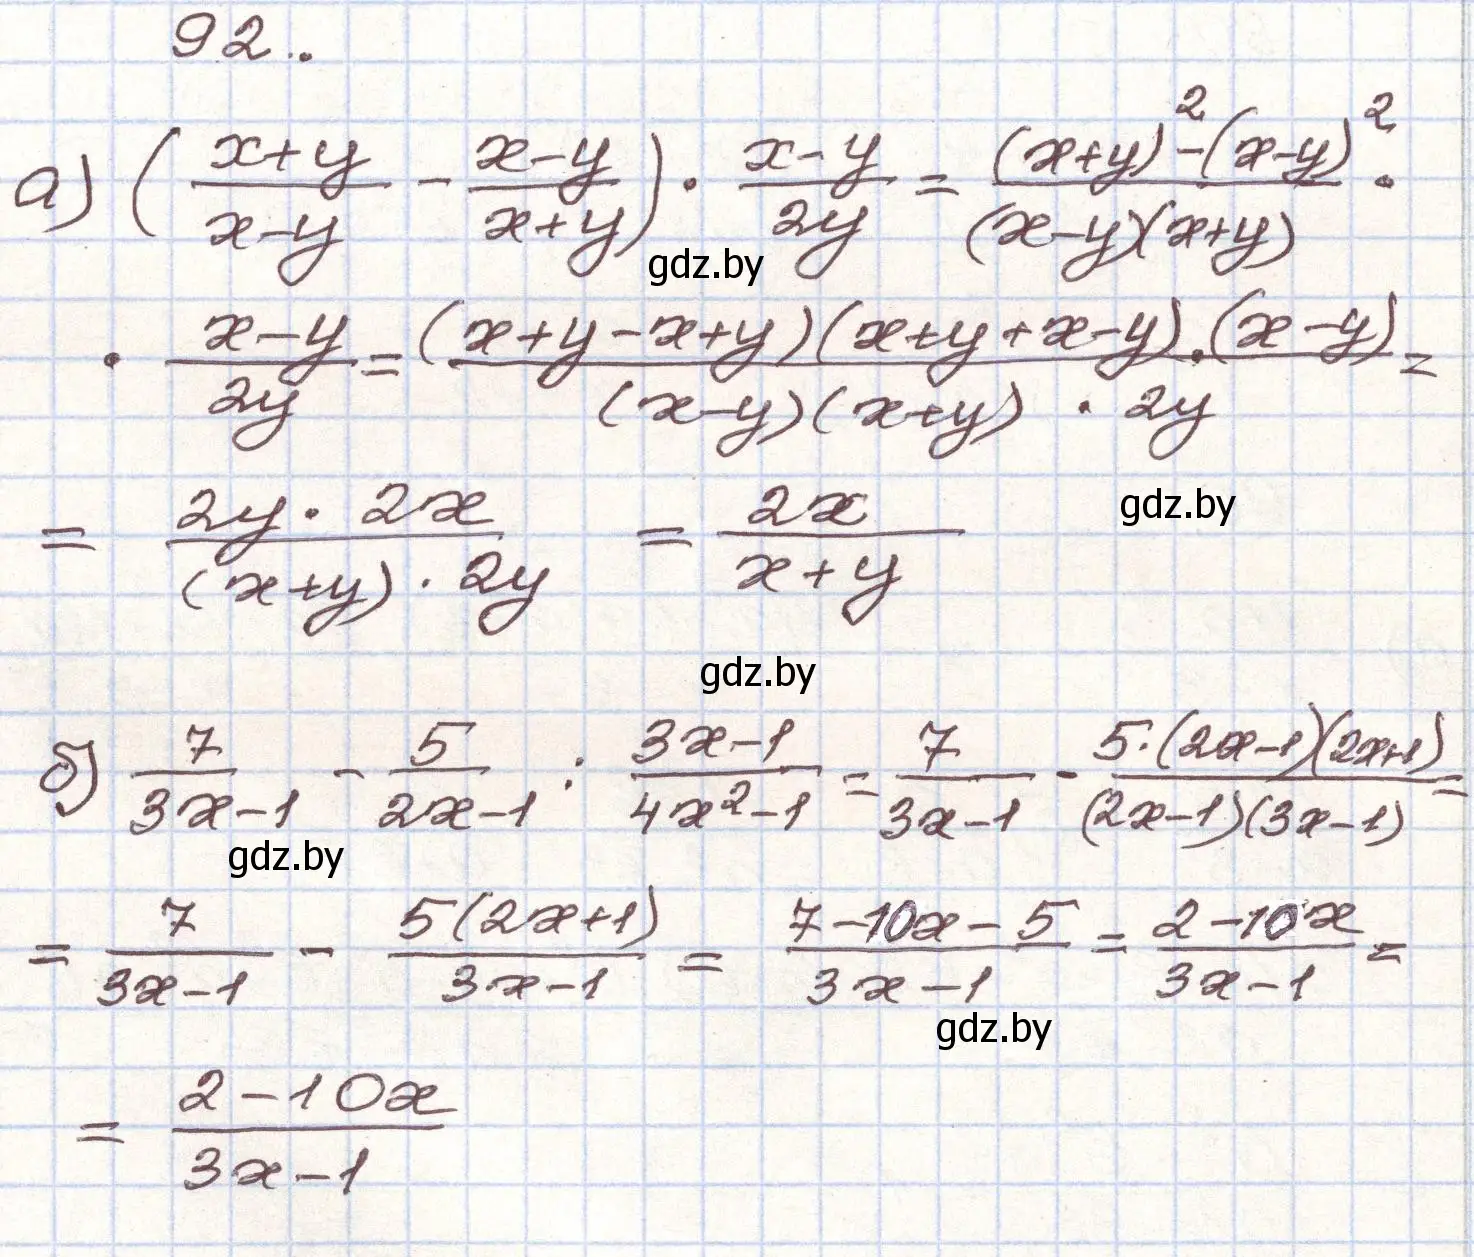 92..
а) ( (x+y)/(x-y) - (x-y)/(x+y) ) · (x-y)/(2y) = ((x+y)² - (x-y)²)/((x-y)(x+y)) ·
gdz.by
· (x-y)/(2y) = ((x+y-x+y)(x+y+x-y)·(x-y))/((x-y)(x+y) · 2y) =
= (2y · 2x)/((x+y) · 2y) = 2x/(x+y)
gdz.by
gdz.by
б) 7/(3x-1) - 5/(2x-1) : (3x-1)/(4x²-1) = 7/(3x-1) - (5·(2x-1)(2x+1))/((2x-1)(3x-1)) =
gdz.by
= 7/(3x-1) - (5(2x+1))/(3x-1) = (7-10x-5)/(3x-1) = (2-10x)/(3x-1) =
gdz.by
= (2-10x)/(3x-1)